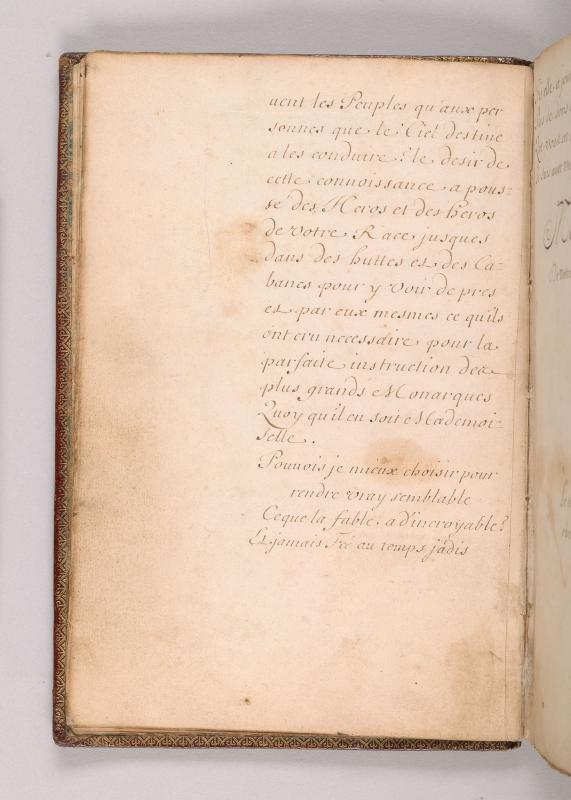 uent les Peuples qu'aux per
sonnes que le Ciel destine
a les conduire? le desir de
cette connoissance a pous=
sé des Heros et des heros
de votre Race, jusques
dans des huttes et des Ca=
banes pour y voir de pres
et par eux mesmes ce qu'ils
ont cru necessaire pour la
parfaite instruction des
plus grands Monarques
Quoy qu'il en soit Mademoi-
selle.
Pouuois je mieux choisir pour
rendre vray semblable
Ce que la fable a d'incroyable?
Et jamais Fée au temps jadis